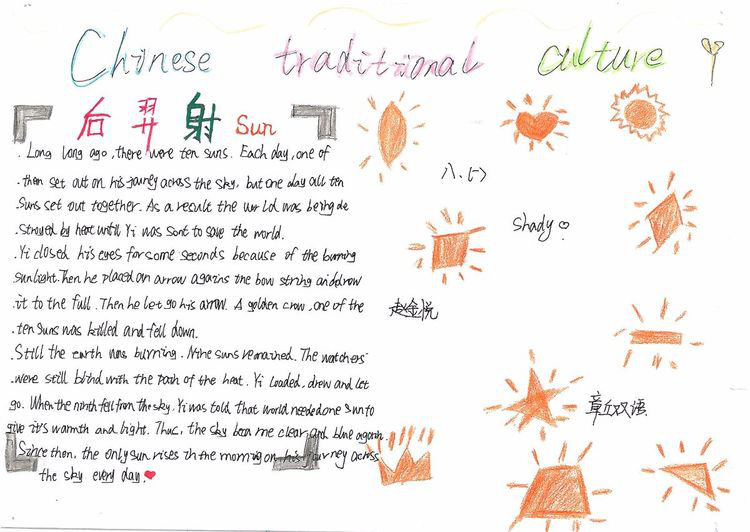 Chinese traditional culture
后羿射 Sun
. Long long ago, there were ten suns. Each day, one of
. them set out on his jouney across the sky, but one day all ten
. Suns set out together. As a result the world was being de
. stroyed by heat until Yi was sent to save the world.
. Yi closed his eyes for some seconds because of the burning
. sunlight. Then he placed an arrow agains the bow string and drow
. it to the full. Then he let go his arrow. A golden crow, one of the
. ten suns was killed and fell down.
Still the earth was burning. Nine suns remained. The watchers'
. were still blind with the pain of the heat. Yi loaded, drew and let
go. When the ninth fell from the sky. Yi was told that world needed one sun to
give its warmth and light. Thus, the sky became clear and blue again.
Since then, the only sun rises in the morning on his journey across
the sky every day.
八.(一)
Shady
赵金悦
章丘双语